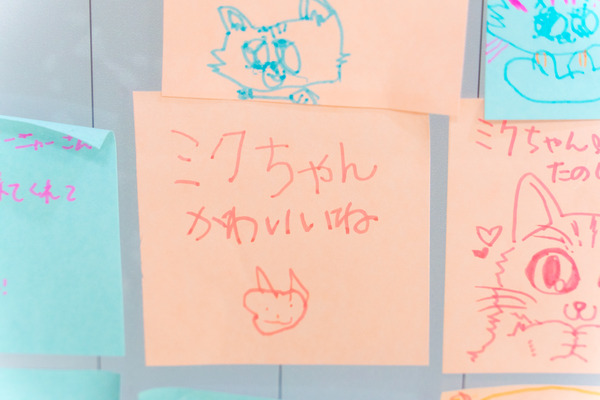 ミクちゃん
かわいいね
ーニャーさん
れてくれて
ミクちゃん
たの